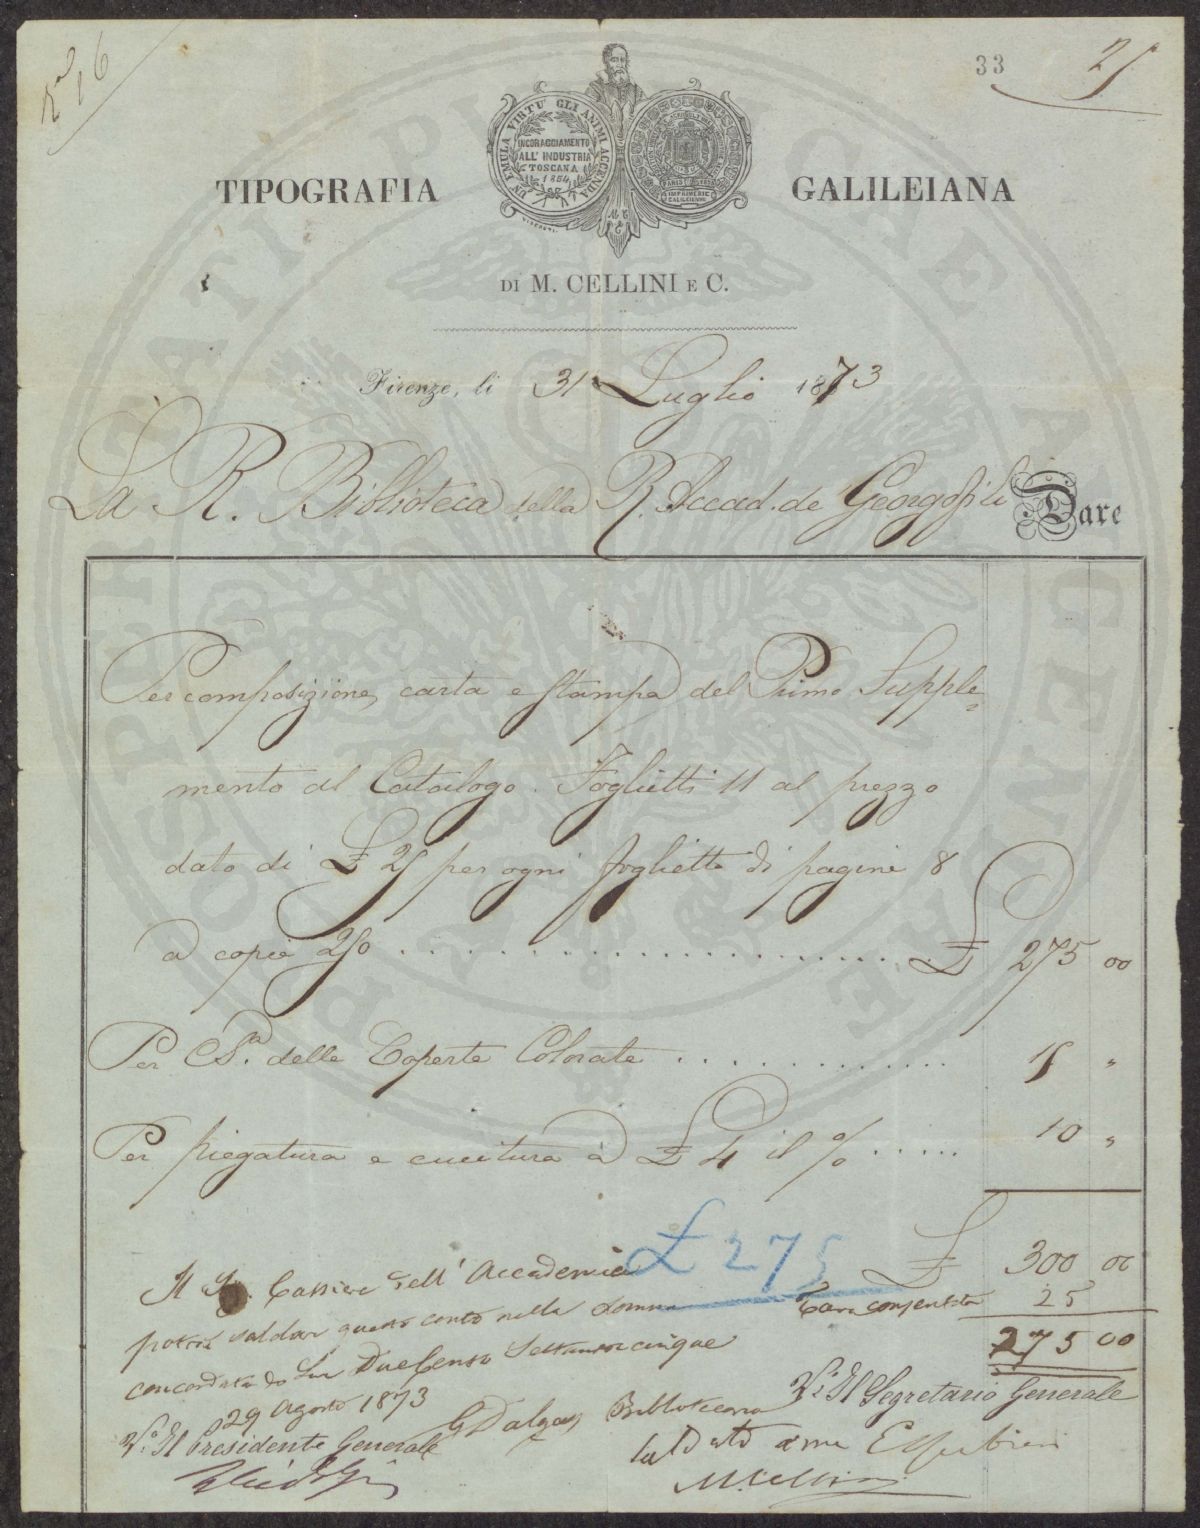 33
25
TIPOGRAFIA GALILEIANA
UN EMULA VIRTU' GLI ANIMI ACCENDA
INCORAGGIAMENTO
ALL'INDUSTRIA
TOSCANA
1854
PARIS
IMPRIMERIE
GALILEIENNE
DI M. CELLINI E C.
Firenze, li 31 Luglio 1873
La R. Biblioteca della R. Accad. de Georgofili Dare
Per composizione, carta e stampa del Primo Supple=
mento al Catalogo. Foglietti 11 al prezzo
dato di £ 25 per ogni foglietto di pagine 8
a copie 250 .................... £ 275 00
Per C.S.a delle Coperte Colorate ............ 15 "
Per piegatura e cucitura a £ 4 il % ..... 10 "
£ 300 00
£ 275
Tara consentita 25
275 00
Il Sr. Cassiere dell'Accademia
potrà saldar questo conto nella somma
concordata di Lire Duecento Settantacinque
29 Agosto 1873
G Dalgas Bibliotecario
Vo. Il Presidente Generale
Vo. Il Segretario Generale
Saldato a me
M. Cellini
PROSPERITATI PUBLICAE AUGENDAE